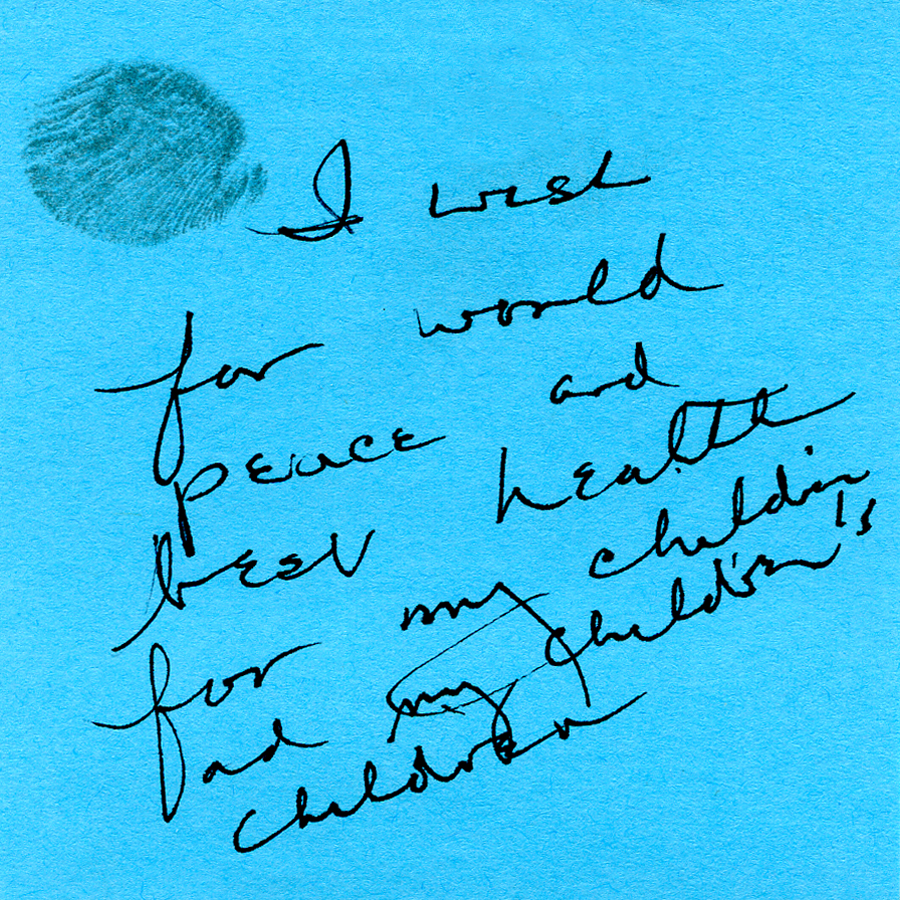 I wish
for world
peace and
best health
for my children
and my children's
children